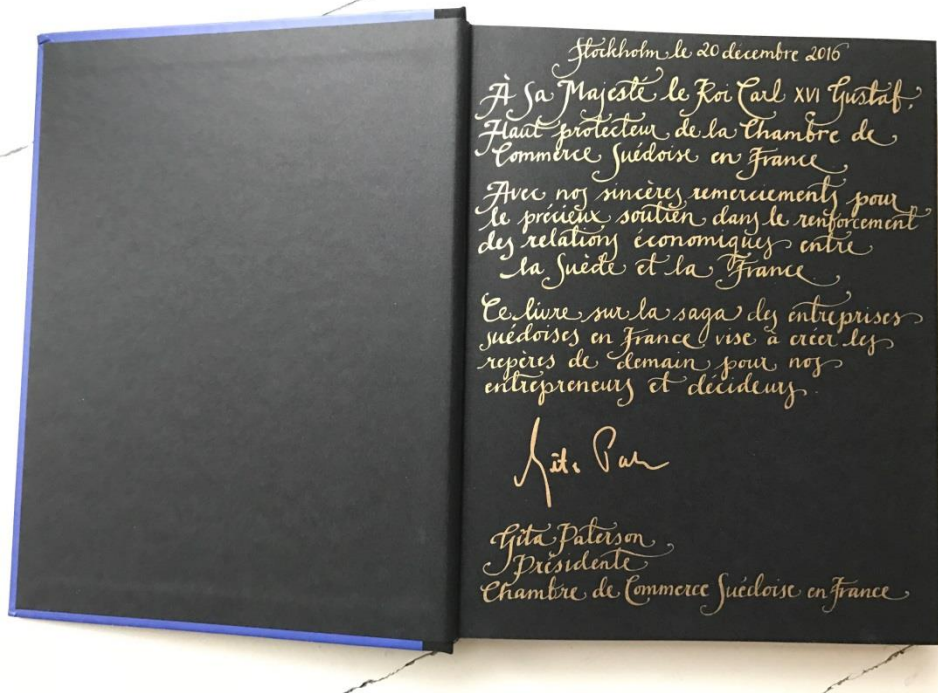 Stockholm le 20 decembre 2016
À Sa Majesté le Roi Carl XVI Gustaf,
Haut protecteur de la Chambre de
Commerce Suédoise en France
Avec nos sincères remerciements pour
le précieux soutien dans le renforcement
des relations économiques entre
la Suède et la France
Ce livre sur la saga des entreprises
suédoises en France vise à créer les
repères de demain pour nos
entrepreneurs et décideurs.
Gita Paterson
Présidente
Chambre de Commerce Suédoise en France